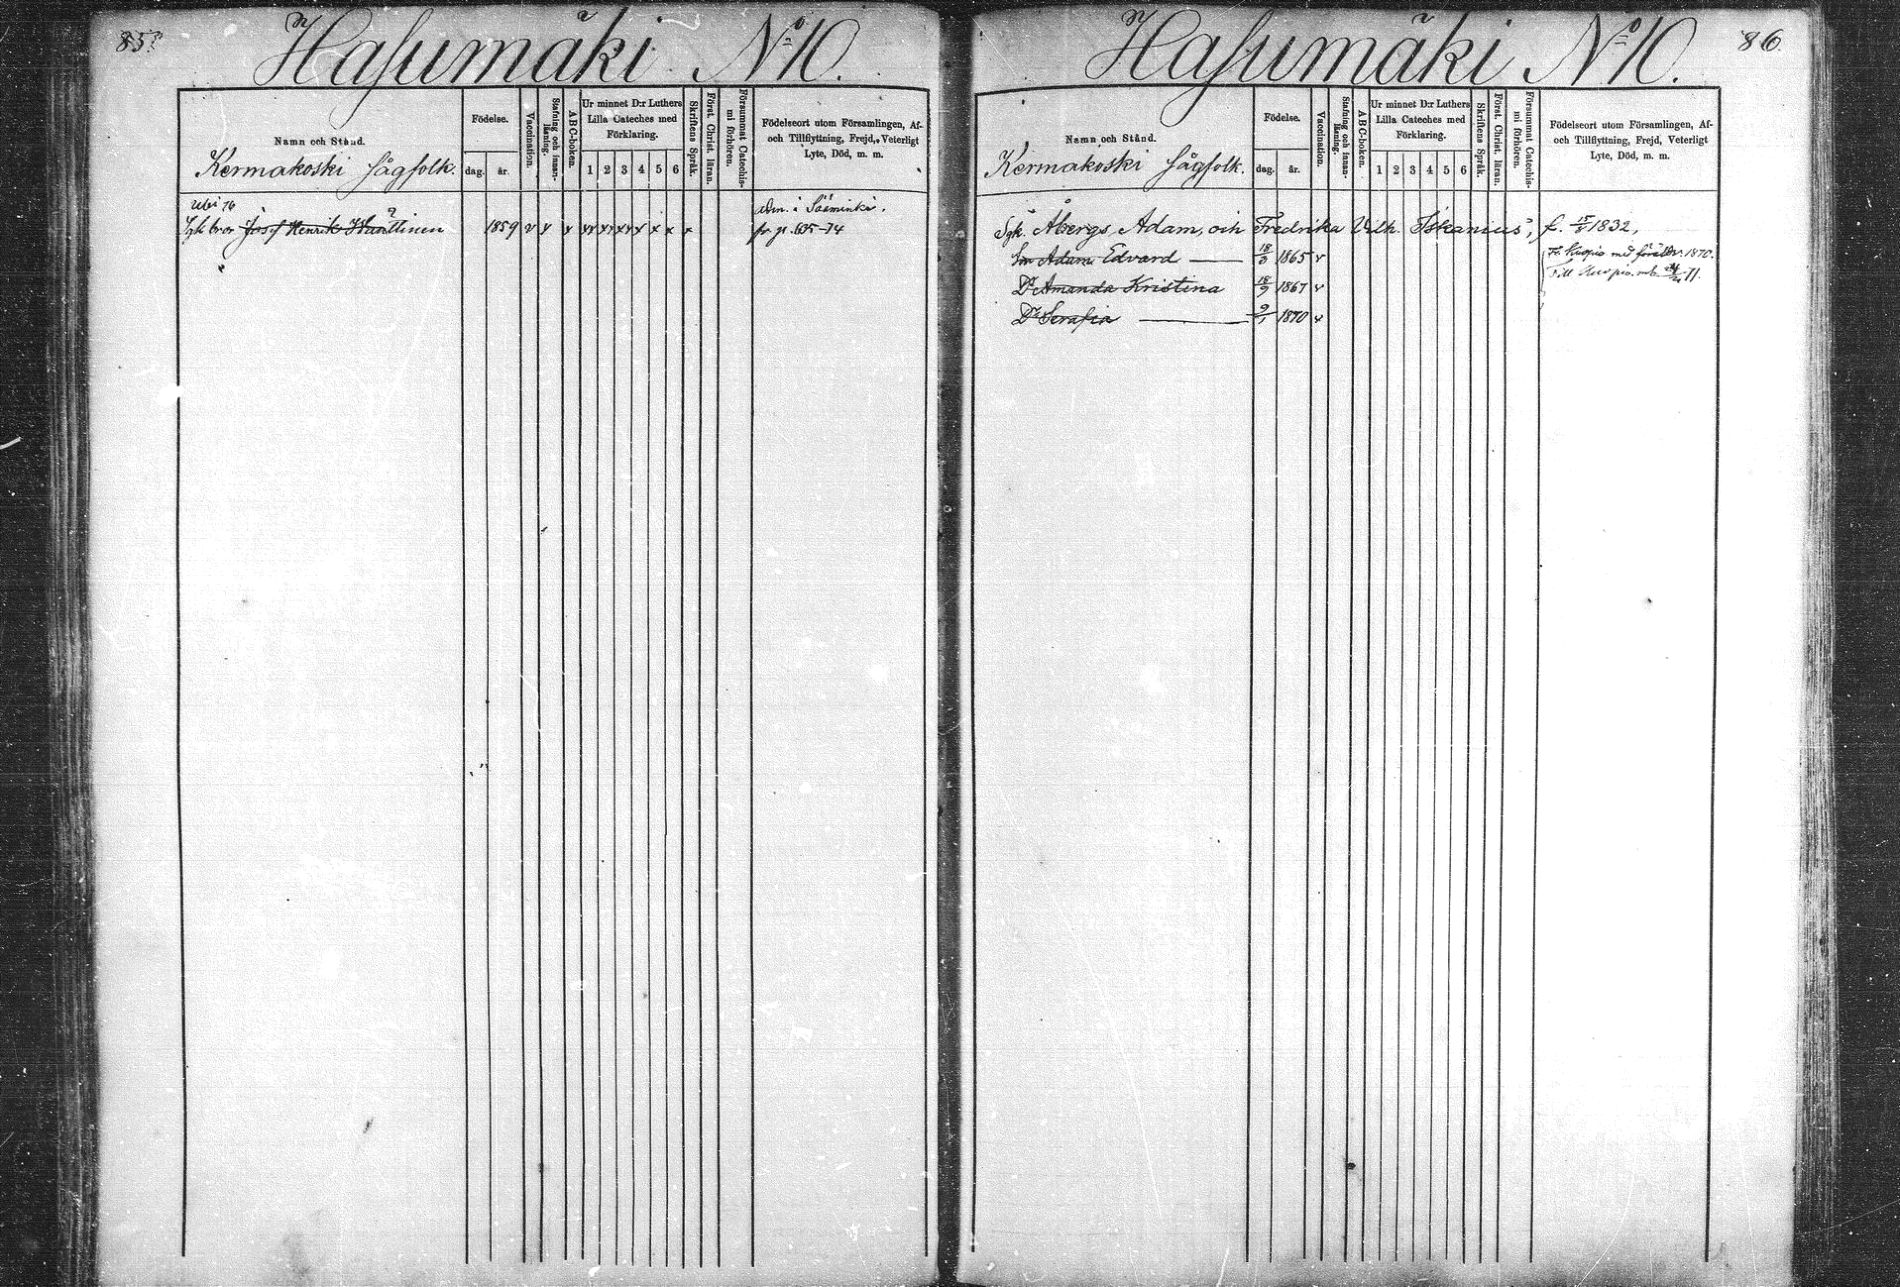 85
Hasumäki No 10.
Namn och Stånd.
Kermakoski Sågfolk.
Födelse.
dag. år.
Vaccination.
Stafning och innanläsning.
ABC-boken.
Ur minnet D:r Luthers Lilla Cateches med Förklaring.
1 2 3 4 5 6
Skriftens Språk.
Först. Christ. läran.
Försummat Catechismi förhören.
Födelseort utom Församlingen, Af- och Tillflyttning, Frejd, Veterligt Lyte, Död, m. m.
Ubi 76
bror Josef Henrik 1859
i Sääminki.
fr. p. 635-74
86
Hasumäki No 10.
Namn och Stånd.
Kermakoski Sågfolk.
Födelse.
dag. år.
Vaccination.
Stafning och innanläsning.
ABC-boken.
Ur minnet D:r Luthers Lilla Cateches med Förklaring.
1 2 3 4 5 6
Skriftens Språk.
Först. Christ. läran.
Försummat Catechismi förhören.
Födelseort utom Församlingen, Af- och Tillflyttning, Frejd, Veterligt Lyte, Död, m. m.
Sgk. Åbergs, Adam, och Fredrika Vilh. Iskanius', f. 15/8 1832,
Sn Adam Edvard 18/3 1865 v
Fr. Kuopio med föräldr. 1870.
Till Kuopio 71.
Dr Amanda Kristina 18/9 1867 v
Dr Serafia 9/1 1870 v